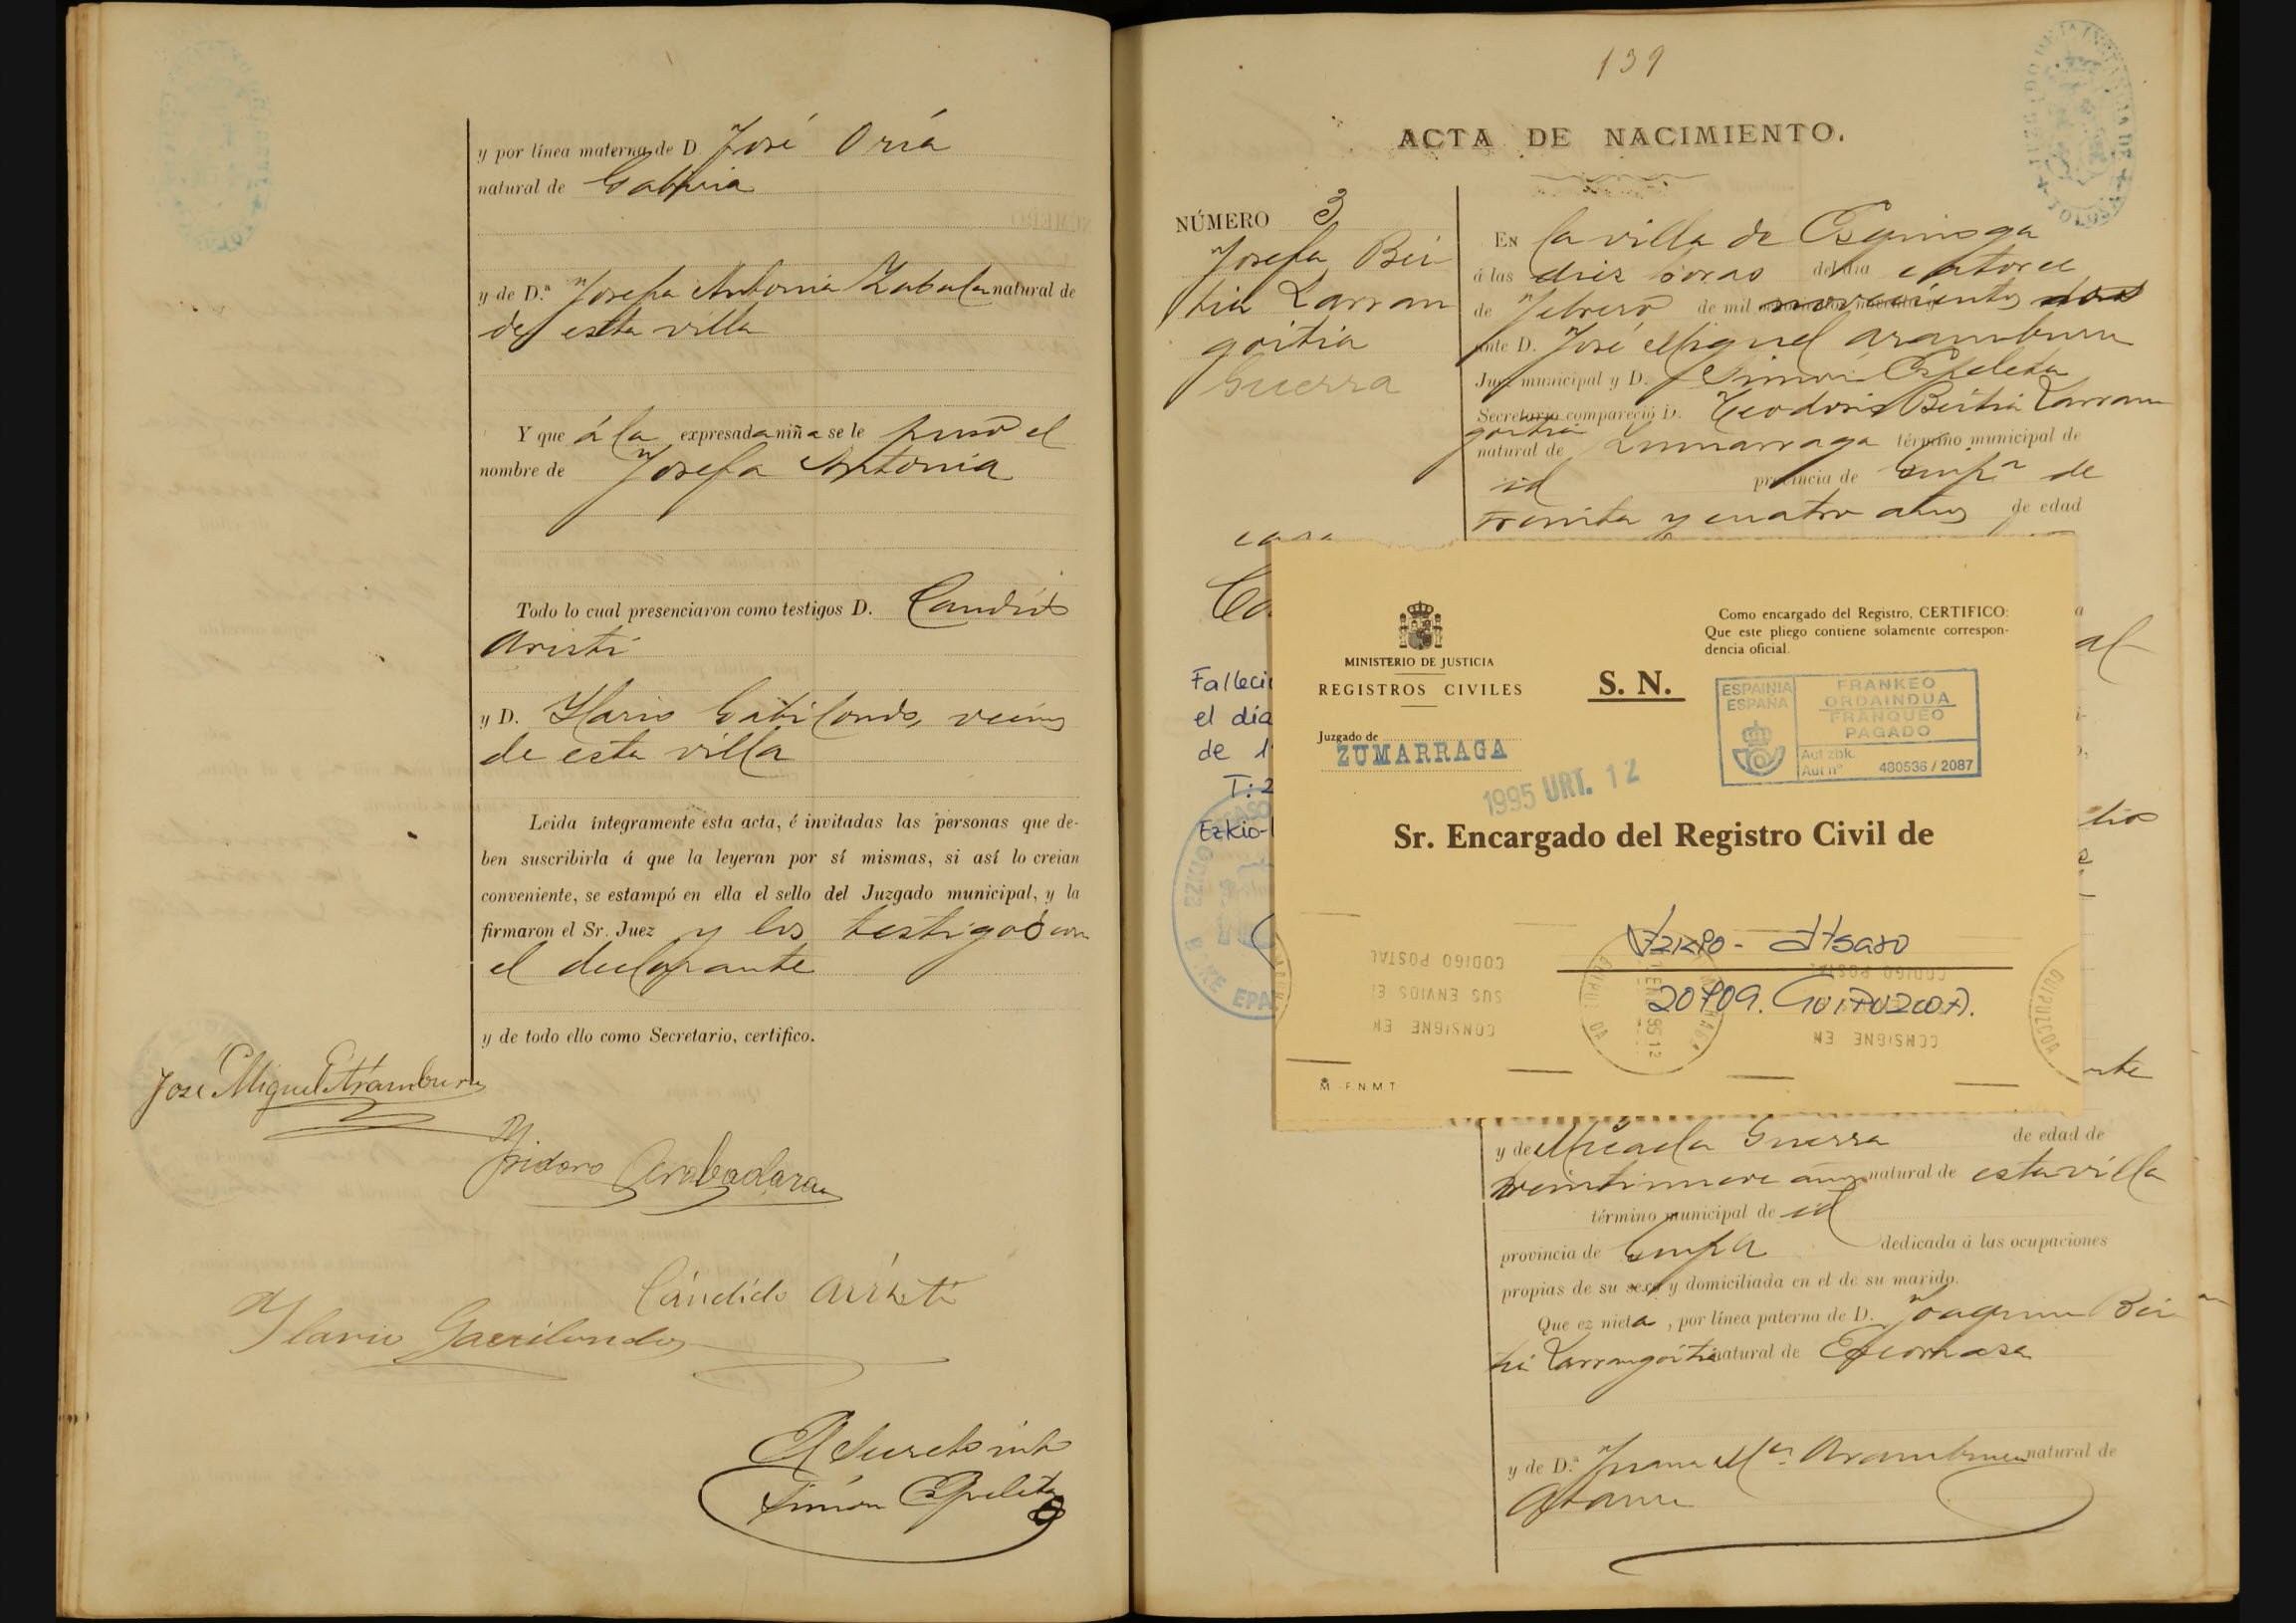 y por línea materna de D. José Oria
natural de Gabiria
y de D.ª Josefa Antonia Zabala natural de
de esta villa
Y que á la expresada niña se le puso el
nombre de Josefa Antonia
Todo lo cual presenciaron como testigos D. Candido
Aristi
y D. Ylario Gabilondo, vecinos
de esta villa
Leida íntegramente esta acta, é invitadas las personas que de-
ben suscribirla á que la leyeran por sí mismas, si así lo creian
conveniente, se estampó en ella el sello del Juzgado municipal, y la
firmaron el Sr. Juez y los testigos con
el declarante
y de todo ello como Secretario, certifico.
José Miguel Aramburu
Ysidoro
Cándido Aristi
Ylario Gavilondo
Simón Ezpeleta
139
ACTA DE NACIMIENTO.
NÚMERO 3
Josefa Bei
tia Larran
goitia
Guerra
En la villa de Ezquioga
á las diez horas del dia catorce
de Febrero de mil novecientos dos
ante D. José Miguel Aramburu
Juez municipal y D. Simón Ezpeleta
Secretario compareció D. Teodosio Beitia Larran
goitia
natural de Zumarraga término municipal de
id provincia de Guipª de
treinta y cuatro años de edad
casa
Falleci
el día
de 1
T: 2
Ezkio-
MINISTERIO DE JUSTICIA
REGISTROS CIVILES
Juzgado de
ZUMARRAGA
S. N.
Como encargado del Registro, CERTIFICO:
Que este pliego contiene solamente correspon-
dencia oficial.
ESPAINIA
ESPAÑA
FRANKEO
ORDAINDUA
FRANQUEO
PAGADO
Aut zbk.
Aut nº 480536 / 2087
1995 URT. 12
Sr. Encargado del Registro Civil de
Ezkio - Itsaso
20709. GUIPUZCOA.
CONSIGNE EN
SUS ENVIOS EL
CODIGO POSTAL
CONSIGNE EN
CODIGO POSTAL
GUIPUZCOA
F.N.M.T.
y de Micaela Guerra de edad de
veintinueve años natural de esta villa
término municipal de id
provincia de Guipª dedicada á las ocupaciones
propias de su sexo y domiciliada en el de su marido.
Que es nieta, por línea paterna de D. Joaquin Bei
tia Larrangoitia natural de
y de D.ª Juana Mª Aramburu natural de
Ataun